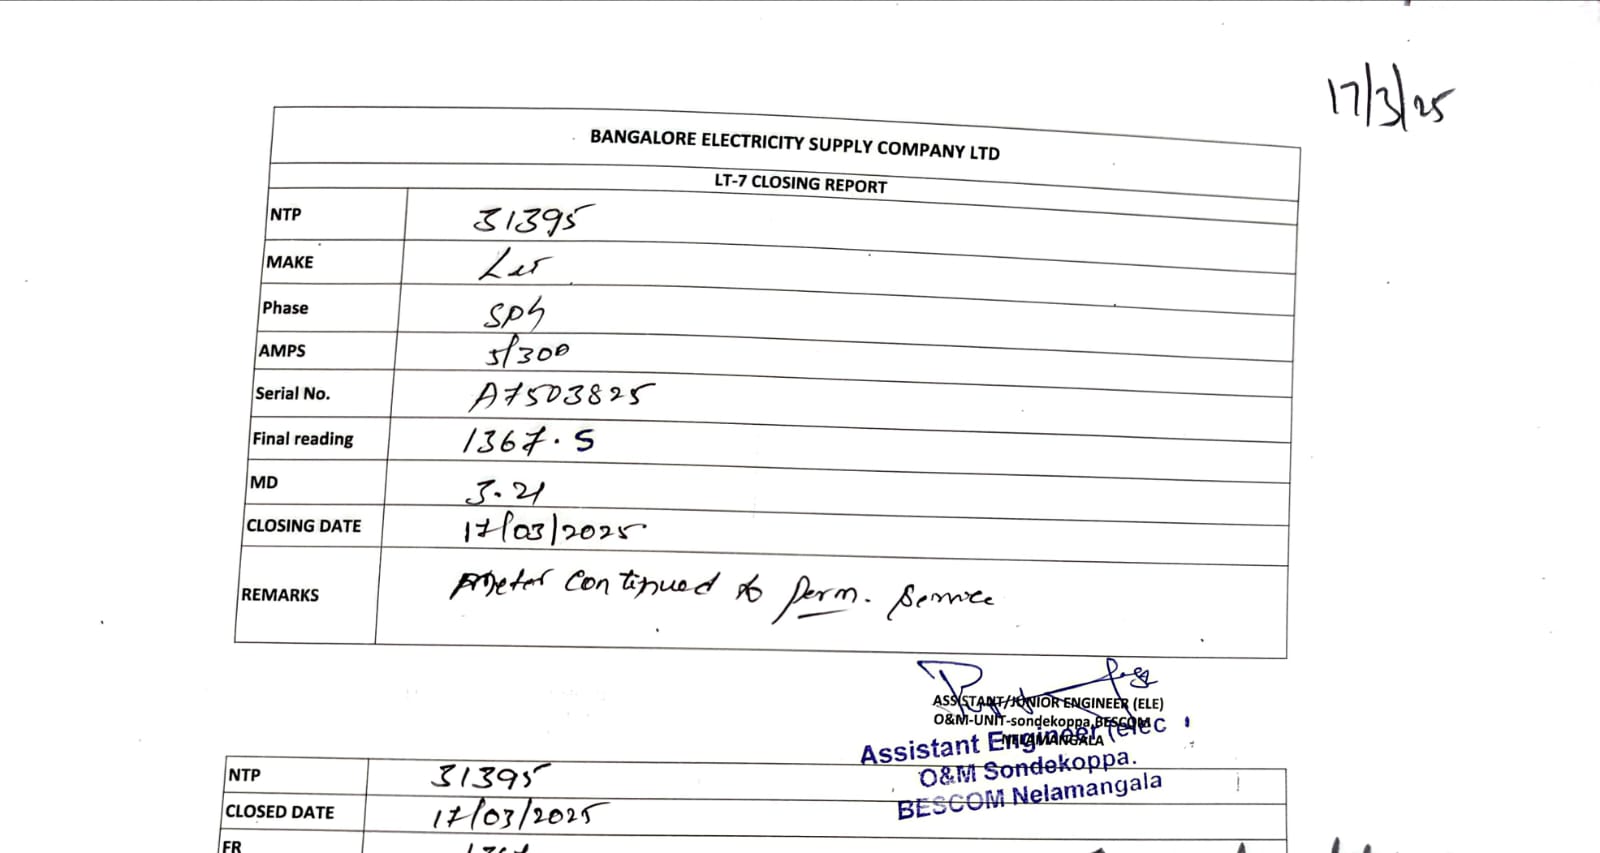 17/3/25
BANGALORE ELECTRICITY SUPPLY COMPANY LTD
LT-7 CLOSING REPORT
NTP 31395
MAKE
Phase SPH
AMPS 5/300
Serial No. A7503825
Final reading 1367.5
MD 3.21
CLOSING DATE 17/03/2025
REMARKS Meter continued to perm. service
ASSISTANT/JUNIOR ENGINEER (ELE)
O&M-UNIT-sondekoppa,BESCOM
NELAMANGALA
Assistant Engineer (elec
O&M Sondekoppa.
BESCOM Nelamangala
NTP 31395
CLOSED DATE 17/03/2025
FR 1367